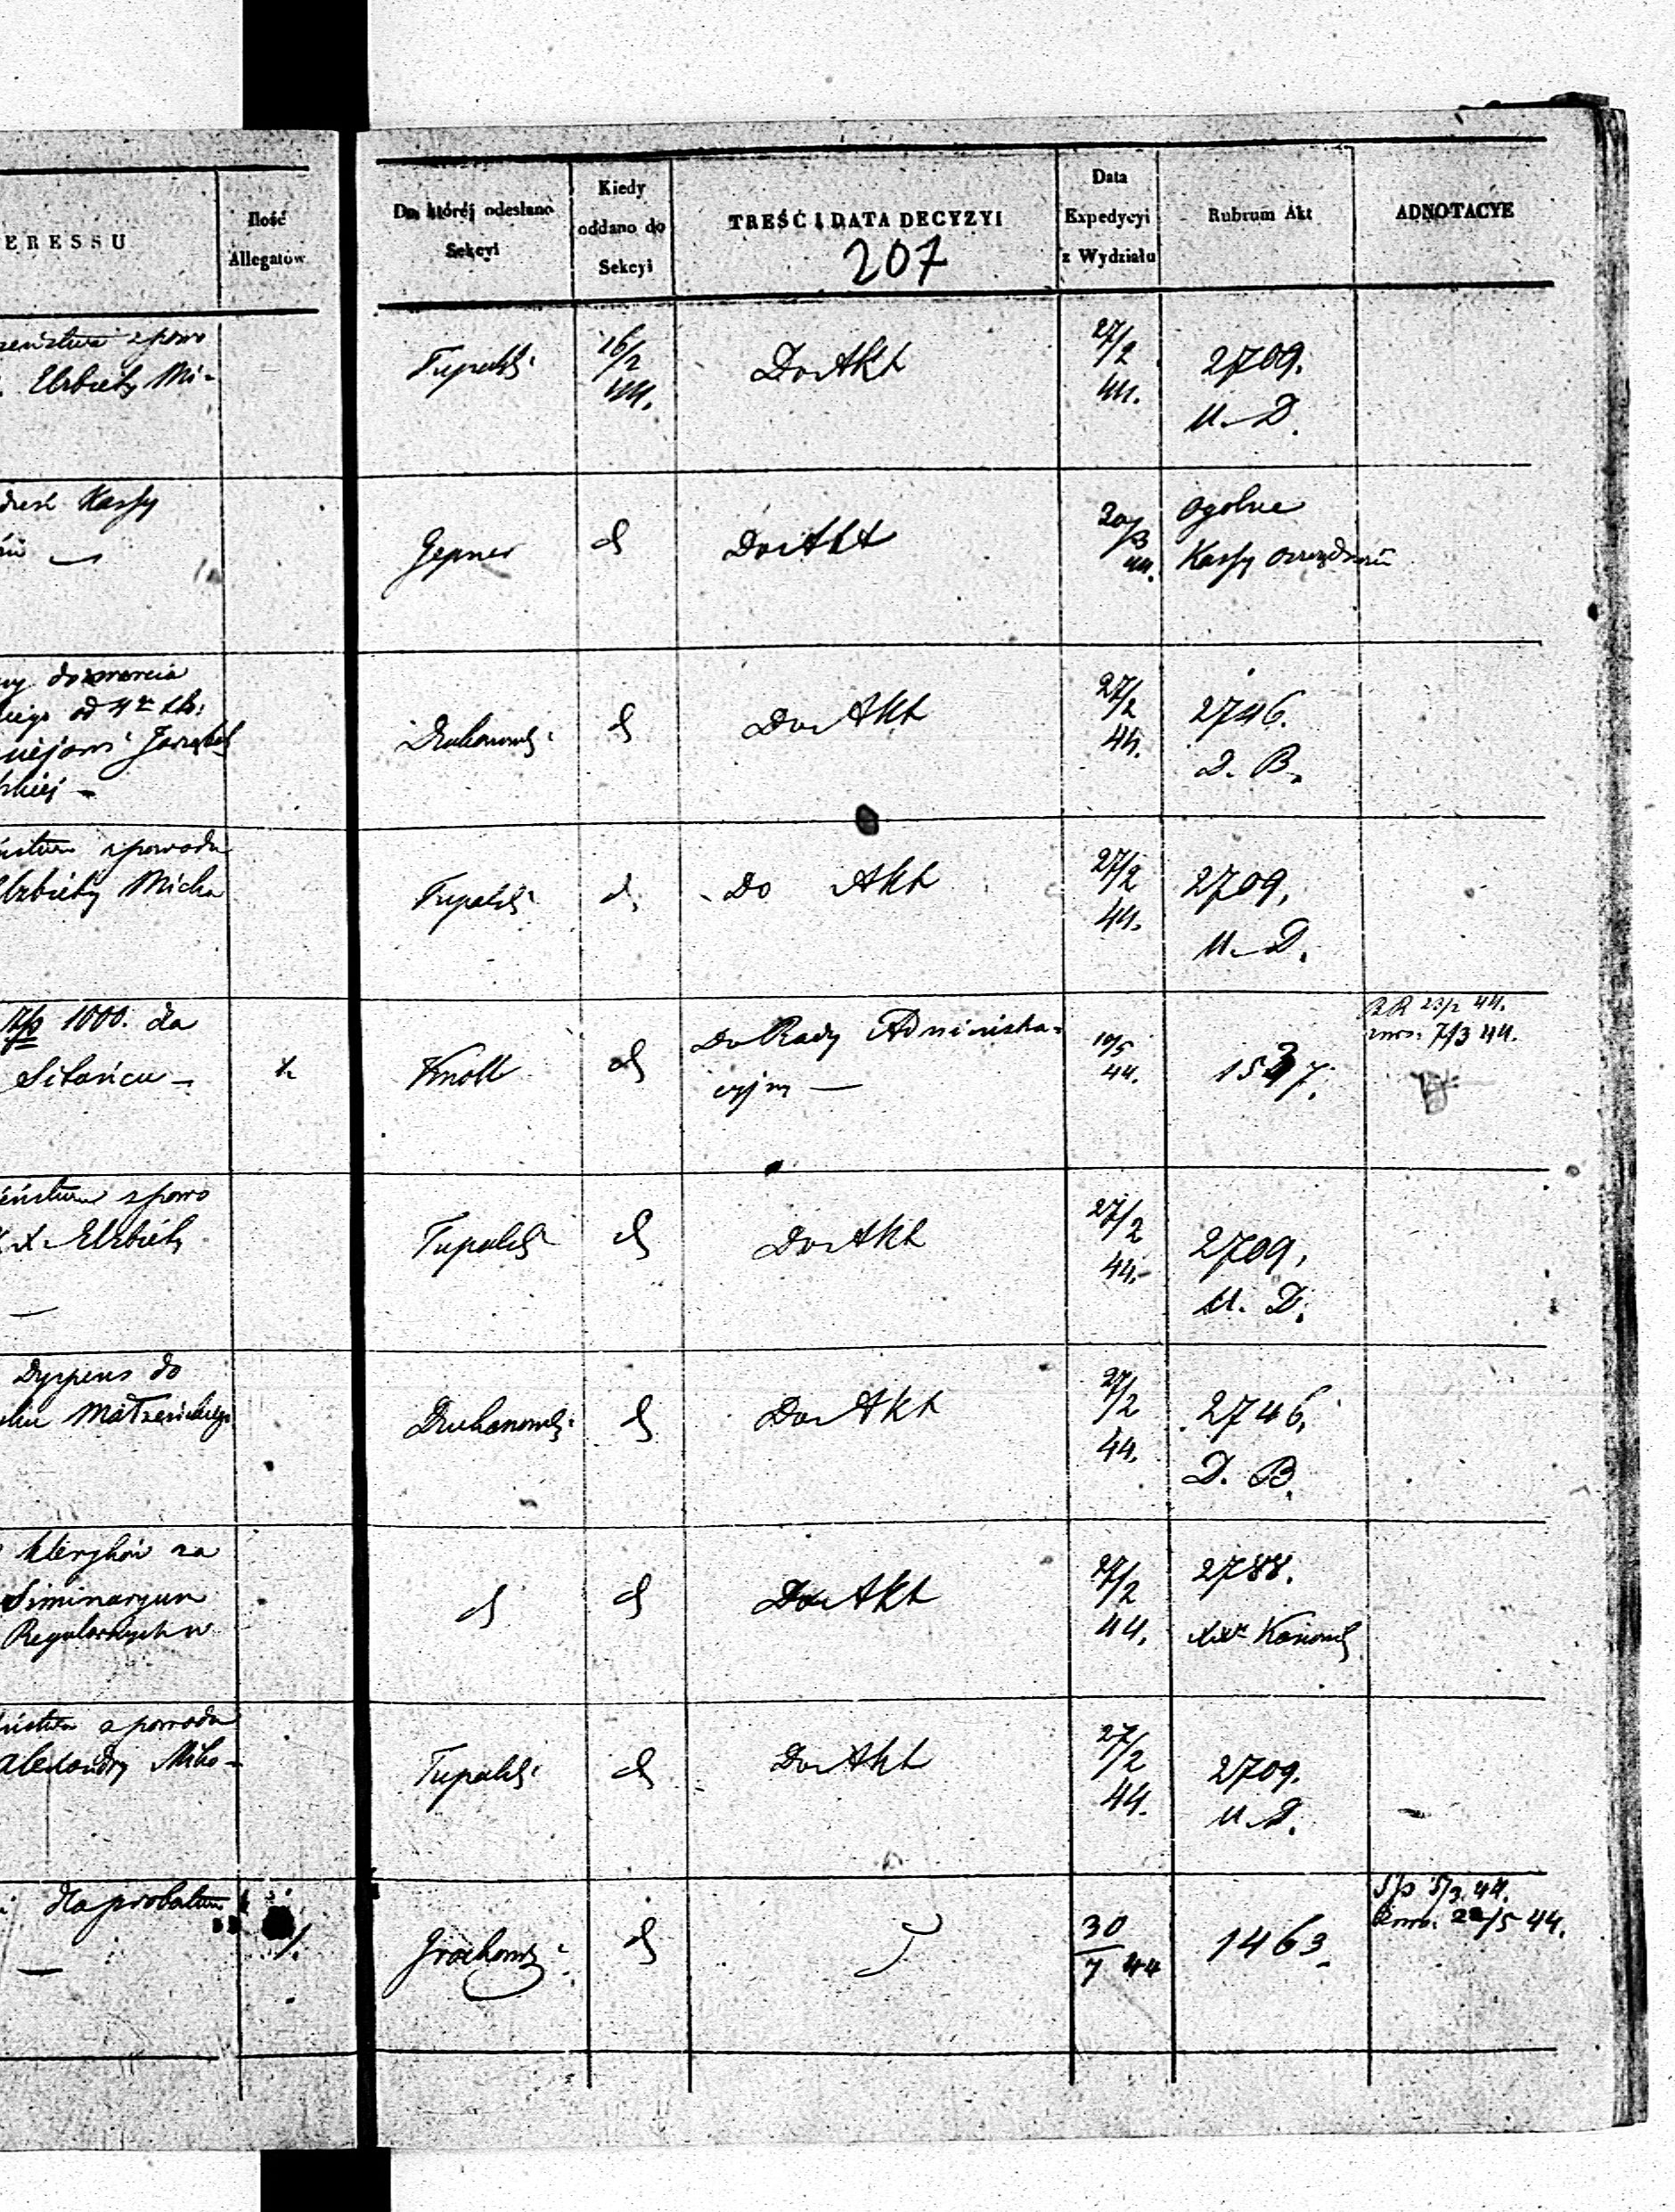 ERESSU
Ilość
Allegatów
Do której odesłano
Sekcyi
Kiedy
oddano do
Sekcyi
TREŚĆ I DATA DECYZYI
207
Data
Expedycyi
z Wydziału
Rubrum Akt
ADNOTACYE
żeństwa z powo
Elżbiety Mi-
Tupalski
16/2
44.
Do Akt
27/2
44.
2709.
M. D.
Kassy
Gepner
d
Do Akt
30/3
44.
ogolne
Kassy
do zawarcia
kiego od 4
skiej -
d
Do Akt
27/2
44.
2746.
D. B.
ństwa z powodu
Elżbiety Micha
Tupalski
d.
Do Akt
27/2
44.
2709.
M. D.
1000. da
Sitańcu -
1.
Knoll
d
Do Rady Administra-
cyjny —
10/5
44.
1537.
RR 23/2 44.
7/3 44.
żeństwa z powo
Elżbiety
Tupalski
d
Do Akt
27/2
44.
2709.
M. D.
Dyspens do
Małżeńskiego
d
Do Akt
27/2
44.
2746.
D. B.
Kleryków za
Siminaryum
Regularnych w
d
d
Do Akt
27/2
44.
2788.
ństwa z powodu
Alexandry Miko-
Tupalski
d
Do Akt
27/2
44.
2709.
M. D.
1.
Grochowski
d
30
7 44
1463.
5/3 44.
22/5 44.